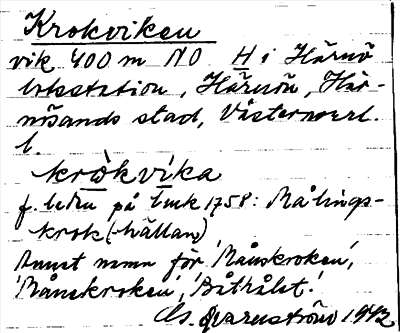 Krokviken
vik 400 m NO H i Härnö
lotsstation, Härnön, Här-
nösands stad, Västernorrl.
l.
kròkvíka
f. leden på 1758: Målings-
krok(-hällan)
Annat namn för 'Månskroken',
'Månskroken', 'Båthålet'.
Qvarnström 1942